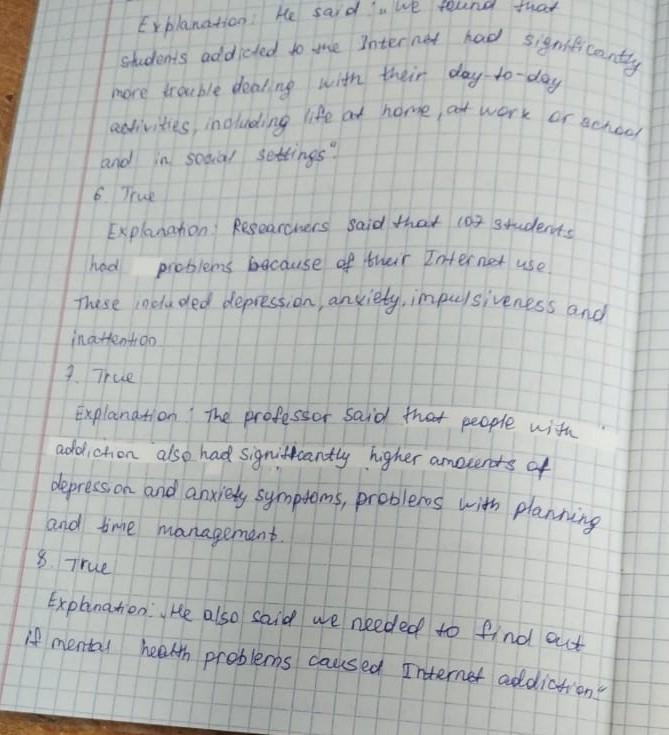 Explanation: He said: „We found that
students addicted to the Internet had significantly
more trouble dealing with their day-to-day
activities, including life at home, at work or school
and in social settings“.
6. True
Explanation: Researchers said that 107 students
had problems because of their Internet use.
These included depression, anxiety, impulsiveness and
inattention
7. True
Explanation: The professor said that people with
addiction also had significantly higher amounts of
depression and anxiety symptoms, problems with planning
and time management.
8. True
Explanation: „He also said we needed to find out
if mental health problems caused Internet addiction“